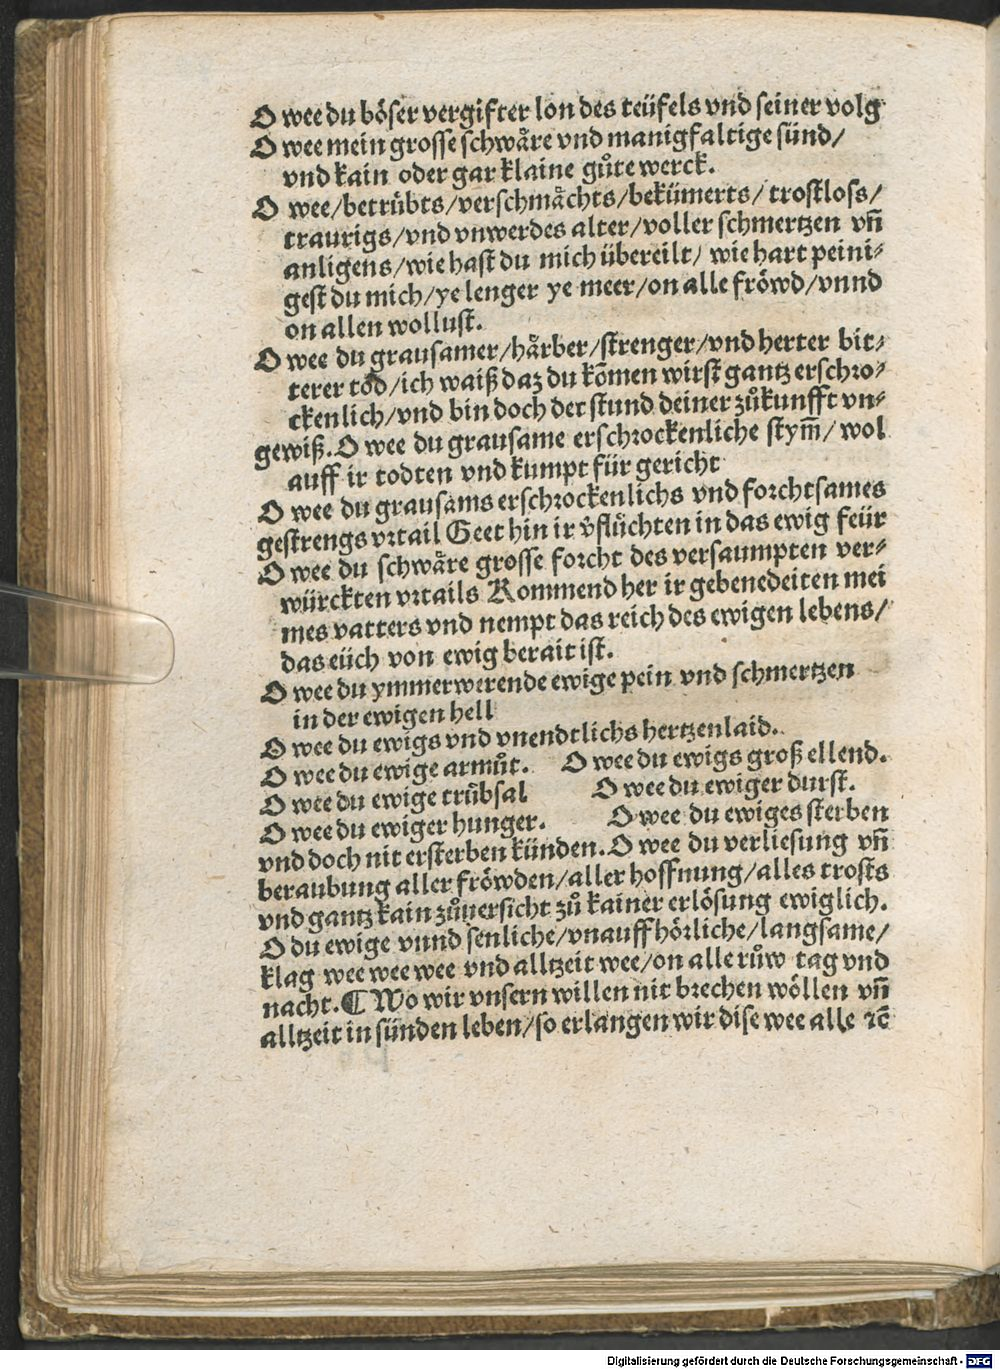 O wee du böser vergifter lon des teüfels vnd seiner volg
O wee mein grosse schwåre vnd manigfaltige sünd/
vnd kain oder gar klaine gůte werck.
O wee/betrůbts/verschmåchts/bekümerts/trostloss/
traurigs/vnd vnwerdes alter/voller schmertzen vñ
anligens/wie hast du mich übereilt/ wie hart peini⸗
gest du mich/ye lenger ye meer/on alle fröwd/vnnd
on allen wollust.
O wee du grausamer/hårber/strenger/vnd herter bit⸗
terer tod/ich waiß daz du kõmen wirst gantz erschro⸗
ckenlich/vnd bin doch der stund deiner zůkunfft vn⸗
gewiß. O wee du grausame erschrockenliche stym̃/ wol
auff ir todten vnd kumpt für gericht
O wee du grausams erschrockenlichs vnd forchtsames
gestrengs vrtail Geet hin ir v̊flůchten in das ewig feür
O wee du schwåre grosse forcht des versaumpten ver⸗
würckten vrtails Kommend her ir gebenedeiten mei
mes vatters vnd nempt das reich des ewigen lebens/
das eüch von ewig berait ist.
O wee du ymmerwerende ewige pein vnd schmertzen
in der ewigen hell
O wee du ewigs vnd vnendtlichs hertzenlaid.
O wee du ewige armůt. O wee du ewigs groß ellend.
O wee du ewige trůbsal O wee du ewiger durst.
O wee du ewiger hunger. O wee du ewiges sterben
vnd doch nit ersterben künden. O wee du verliesung vñ
beraubung aller fröwden/aller hoffnung/alles trosts
vnd gantz kain zůuersicht zů kainer erlösung ewiglich.
O du ewige vnnd senliche/vnauffhörliche/langsame/
klag wee wee wee vnd alltzeit wee/on alle růw tag vnd
nacht. ¶ Wo wir vnsern willen nit brechen wöllen vñ
alltzeit in sünden leben/so erlangen wir dise wee alle ⁊c̃
Digitalisierung gefördert durch die Deutsche Forschungsgemeinschaft - DFG